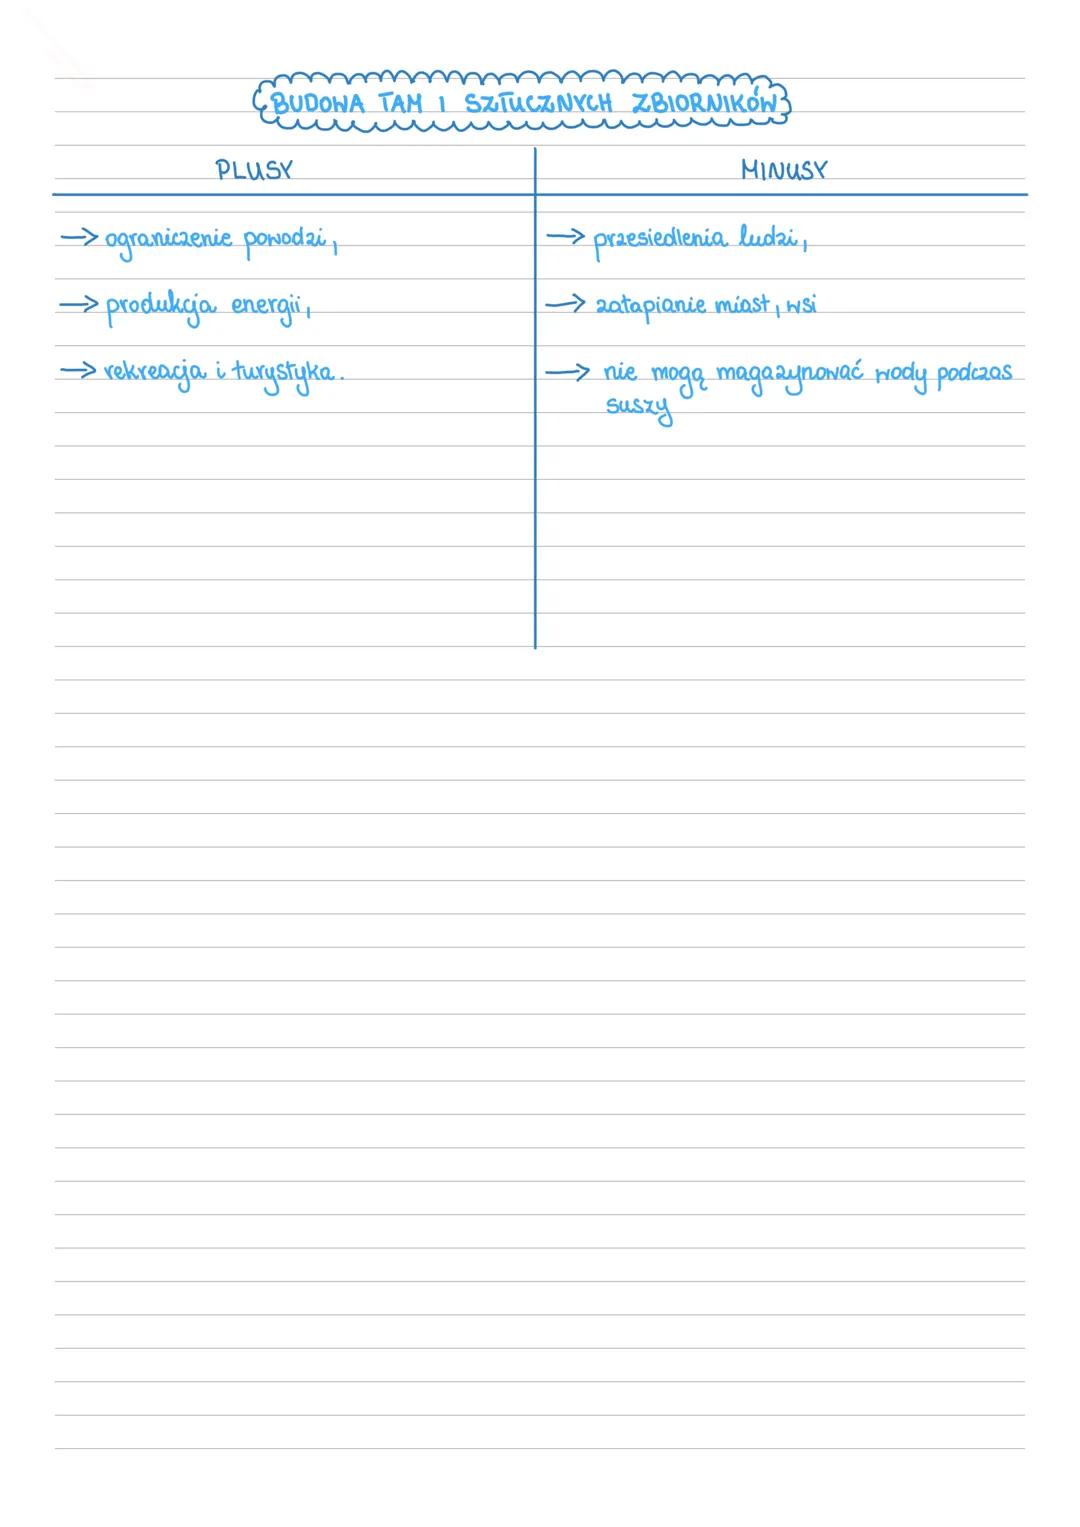 BUDOWA TAM I SZTUCZNYCH ZBIORNIKÓW
PLUSY
→ ograniczenie powodzi,
→ produkcja energii,
→ rekreacja i turystyka.
MINUSY
→ przesiedlenia ludzi,
→ zatapianie miast, wsi
→ nie mogą magazynować wody podczas
suszy